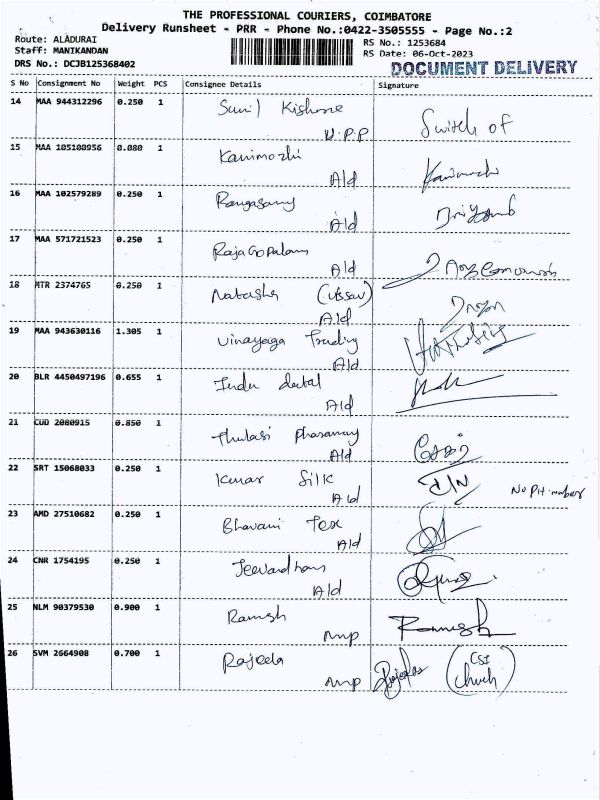 THE PROFESSIONAL COURIERS, COIMBATORE
Delivery Runsheet - PRR - Phone No.:0422-3505555 - Page No.:2
Route: ALADURAI
RS No.: 1253684
Staff: MANIKANDAN
RS Date: 06-Oct-2023
DRS No.: DCJB125368402
DOCUMENT DELIVERY
S No Consignment No Weight PCS Consignee Details Signature
14 MAA 944312296 0.250 1 Sunil Kishore
N.P.P Switch of
15 MAA 105108956 0.080 1 Kanimozhi
Ald
16 MAA 102579289 0.250 1 Rangasamy
Ald
17 MAA 571721523 0.250 1 RajaGopalam
Ald
18 MTR 2374765 0.250 1 Natasha
Ald
19 MAA 943630116 1.305 1 Vinayaga Trading
Ald
20 BLR 4450497196 0.655 1 Indu
Ald
21 CUD 2080915 0.850 1 Thulasi Pharamay
Ald
22 SRT 15068033 0.250 1 Kumar Silk
Ald No PH number
23 AMD 27510682 0.250 1 Bhavani Tex
Ald
24 CNR 1754195 0.250 1 Jeevardham
Ald
25 NLM 90379530 0.900 1 Ramesh
mp Ramesh
26 SVM 2664908 0.700 1 Rajeela
mp Rajeela (CSI
Church)